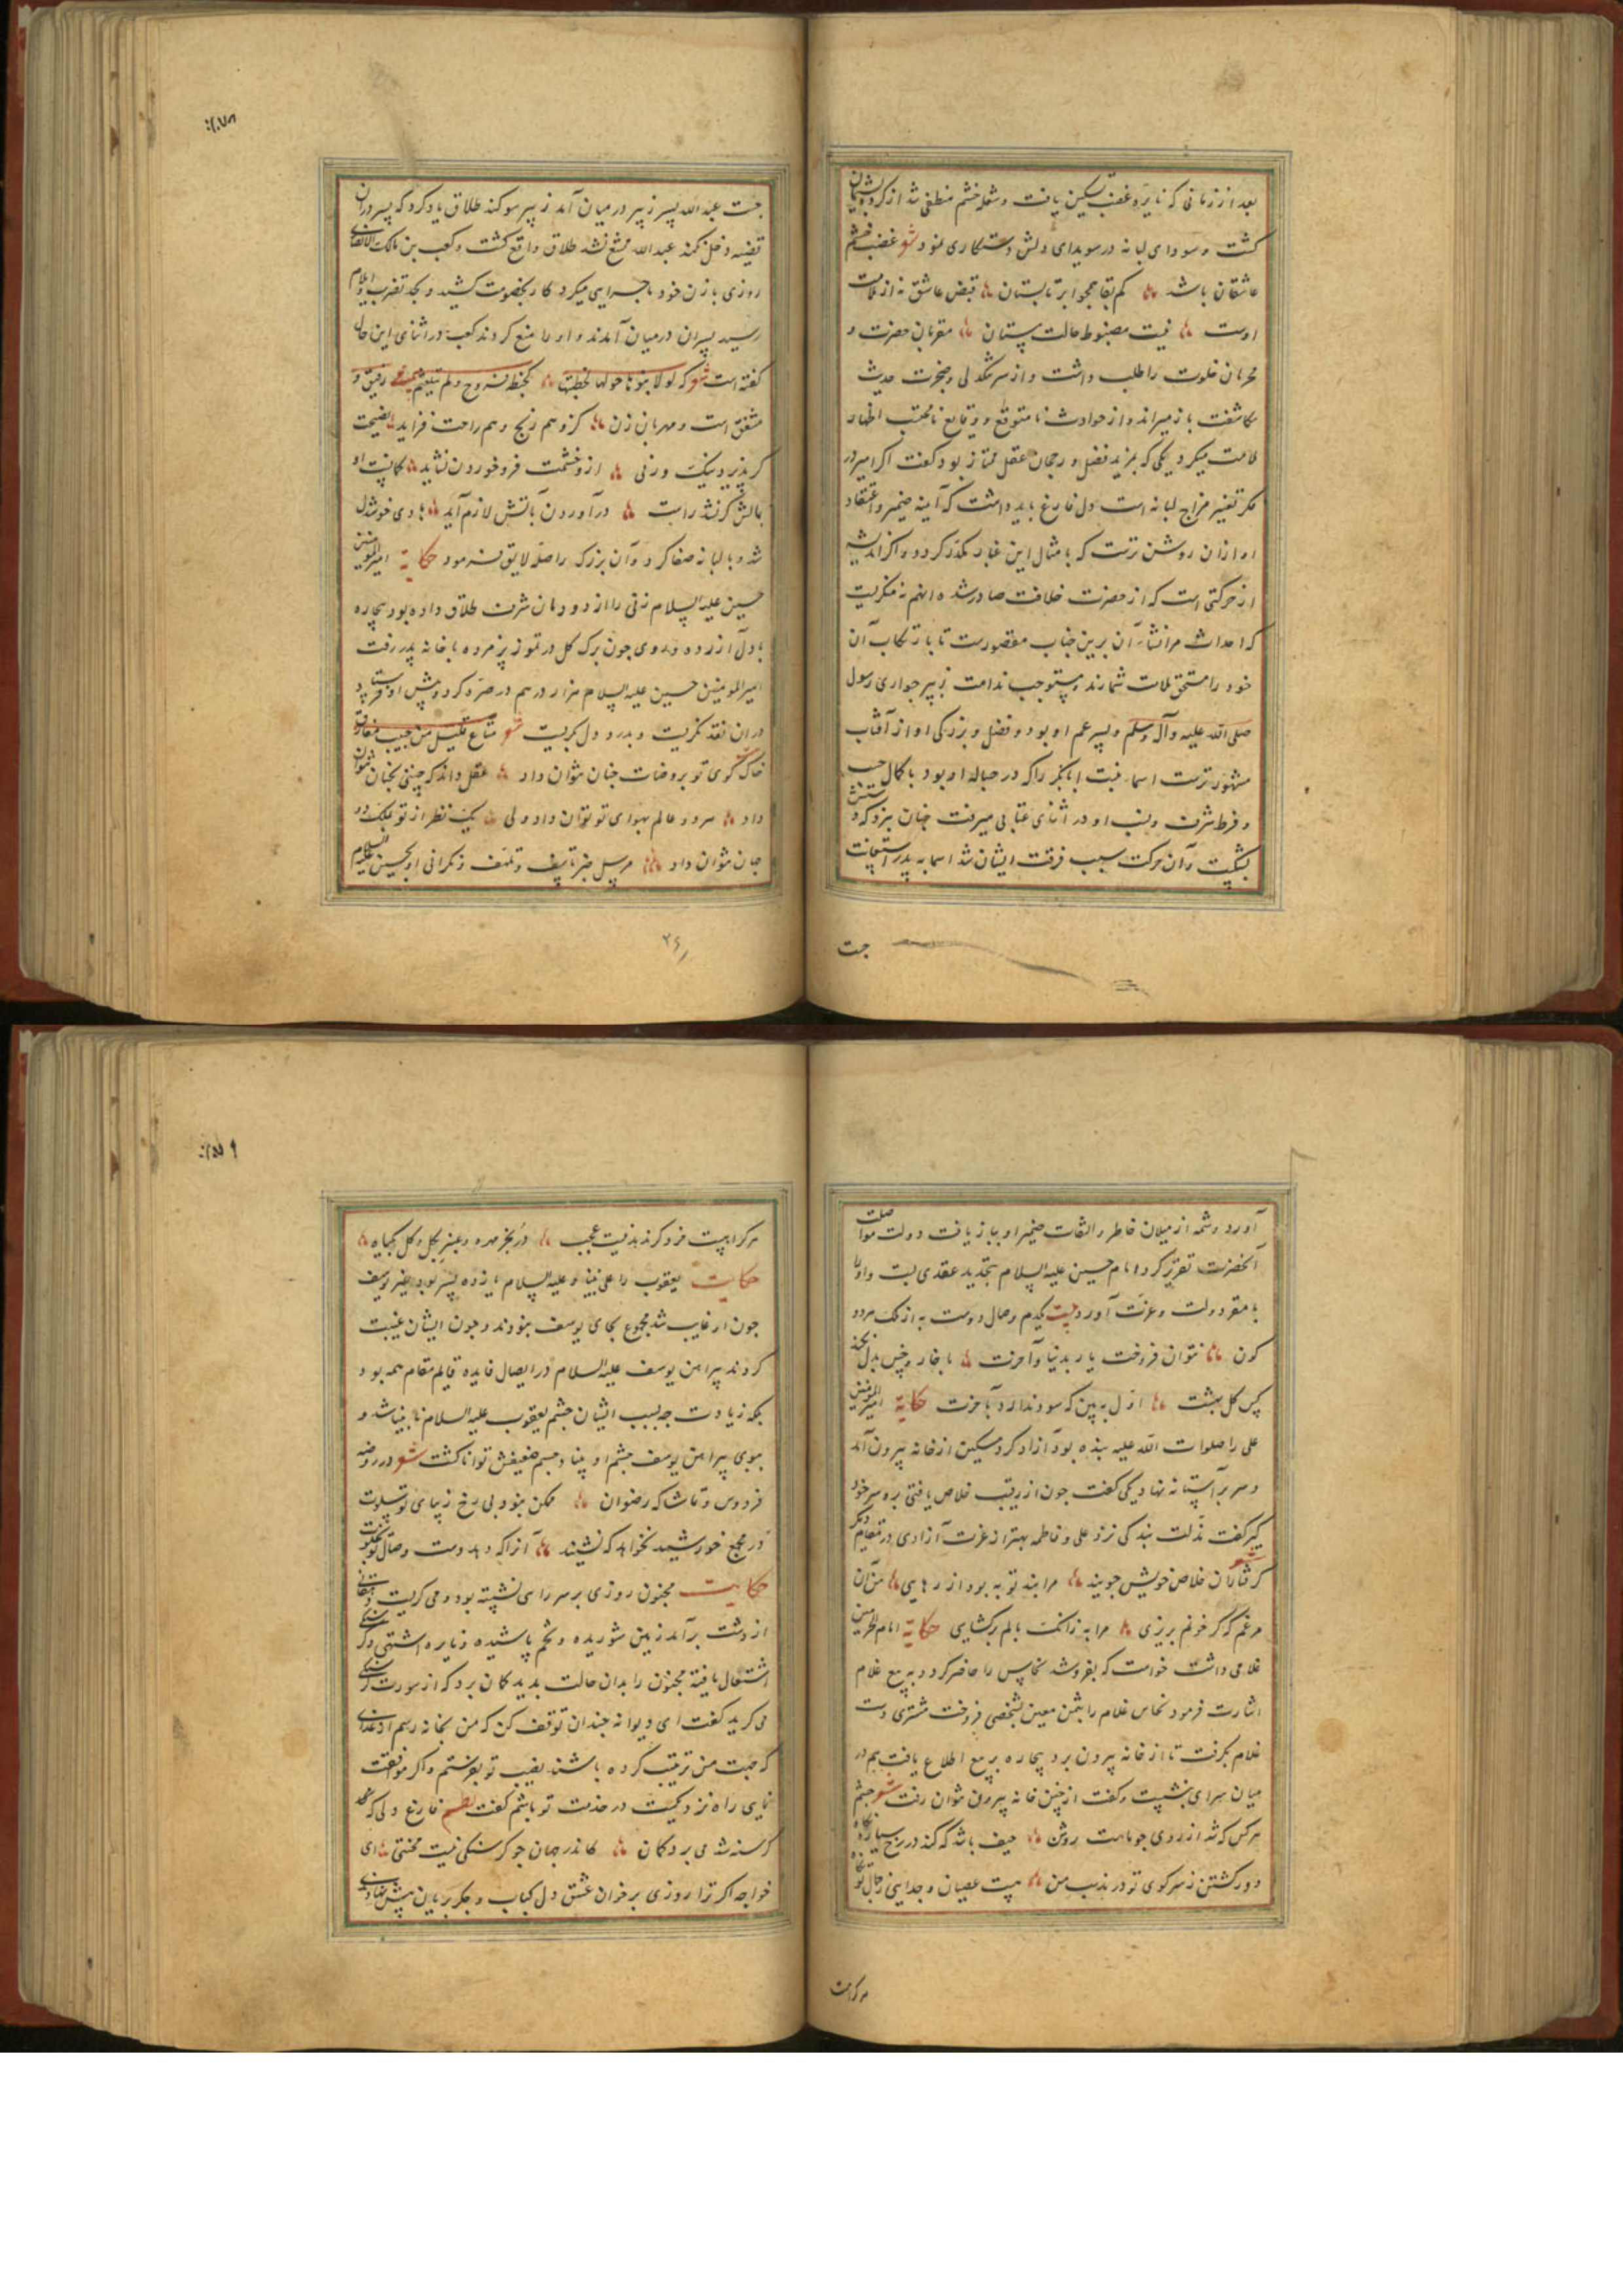 بعد از زمانی که نایره غضب تسکین یافت و شعله خشم منطفی شد از کرده پشیمان
کشت و سودای لبانه در سویدای دلش دستکاری نمود شعر غضب و خشم
عاشقان باشد کم بقا همچو ابر تابستان قبض عاشق نه از ملامت
اوست نیست مضبوط حالت پستان مقربان حضرت و
محرمان خلوت را طلب داشت و از سر تنکدلی و ضجرت حدیث
مکاشفت باز میراند و از حوادث نامتوقع و وقایع نامحتسب اظهار
ملامت میکرد یکی که بمزید فضل و رجحان عقل ممتاز بود کفت اکر امیر در
فکر تغییر مزاج لبانه است دل فارغ باید داشت که آینه ضمیر و اعتقاد
او ازان روشن ترست که بامثال این غبار مکدر کردد و اکر اندیشه
از حرکتی است که از حضرت خلافت صادر شده اینهم نه منکریست
که احداث مر انشاء آن برین جناب مقصورست تا بارتکاب آن
خود را مستحق ملامت شمارند و مستوجب ندامت زبیر حواری رسول
صلی الله علیه و آله وسلم و پسر عم او بود و فضل و بزرکی او از آفتاب
مشهورترست اسماء بنت ابابکر را که در حباله او بود با کمال حسب
و فرط شرف و نسب او در اثنای عتابی میرفت چنان بزد که دستش
بشکست و آن حرکت سبب فرقت ایشان شد اسما به پدر استعانت
جت
جست عبد الله پسر زبیر در میان آمد زبیر سوکند طلاق یاد کرد که پسر دران
قضیه دخل نکند عبد الله ممتنع نشد طلاق واقع کشت و کعب بن مالک الانصاری
روزی با زن خود ماجرایی میکرد کار بخصومت کشید و بحد تضرب و ایلام
رسید پسران درمیان آمدند و او را منع کردند کعب در اثنای این حال
کفته است شعر که لولا بنوها حولها لخبطتها کخبطة فروج ولم تلعثم رفیق و
مشفق است و مهربان زن کزو هم رنج و هم راحت فزاید نصیحت
کر پذیرد نیک ورنی ازو خشمت فرو خوردن نشاید
مالش کر نشد راست درآوردن بآتش لازم آید هادی خوشدل
شد و با لبانه صفا کرد و آن بزرک را صله لایق فرمود حکایة امیرالمومنین
حسین علیه السلام زنی را از دودمان شرف طلاق داده بود بیچاره
با دل آزرده و روی چون برک کل در تموز پژمرده با خانه پدر رفت
امیرالمومنین حسین علیه السلام هزار درهم در صره کرد و پیش او فرستاد
دران نقد نکریست و بدرد دل بکریست شعر متاع قلیل من حبیب مفارق
خاک کوی تو بروضات جنان نتوان داد عقل داند که چنین بخنان نتوان
داد هر دو عالم بهوای تو توان داد ولی یک نظر از تو بملک دو
جهان نتوان داد مرسل خبر تاسف و تلهف و نکرانی او بحسین علیه السلام
۲۶
آورد و شمه از میلان خاطر و التفات ضمیر او بباز یافت دولت مواصلت
آنحضرت تقریر کرد امام حسین علیه السلام بتجدید عقدی بست و او را
با مقر دولت و عزت آورد بیت یکدم وصال دوست به از ملک هر دو
کون نتوان فروخت یار بدنیا و آخرت با خار و خس بدل نکند
کس کل بهشت اول به بین که سود ندارد بآخرت حکایة امیرالمومنین
علی را صلوات الله علیه بنده بود آزاد کرد مسکین از خانه بیرون آمد
و سر بر آستانه نهاد یکی کفت چون از رقیت خلاص یافتی ره سر خود
کیر کفت مذلت بندکی نزد علی و فاطمه بهتر از عزت آزادی در مقام دیکر
شعر
کرفتاران خلاص خویش جویند مرا بند تو به بود از رهایی من آن
مرغم که کر خونم بریزی مرا به زانک بالم برکشایی حکایة امام الحرمین
غلامی داشت خواست که بفروشد نخاس را حاضر کرد و به بیع غلام
اشارت فرمود نخاس غلام را بثمن معین بشخصی فروخت مشتری دست
غلام بکرفت تا از خانه بیرون برد بیچاره بر بیع اطلاع یافت هم در
میان سرای بنشست و کفت از چنین خانه بیرون نتوان رفت شعر چشم
هر کس که شد از روی چو ماهت روشن حیف باشد که کند در رخ سیاره نکاه
دور کشتن ز سر کوی تو در مذهب من هست عصیان و جدایی ز جمال تو کناه
هر کرا هست
هر کرا هست فرو کرند بد نیست عجب در بخر مهره و عنبر بکل و کل بکیاه
حکایت یعقوب را علی نبینا و علیه السلام یازده پسر بود بغیر یوسف
چون او غایب شد مجموع بجای یوسف بنودند و چون ایشان غیبت
کردند پیراهن یوسف علیه السلام در ایصال فایده قایم مقام همه بود و
بلکه زیادت چه بسبب ایشان چشم یعقوب علیه السلام نابینا شد و
ببوی پیراهن یوسف چشم او بینا و جسم ضعیفش توانا کشت شعر در روضه
فردوس و تماشاکه رضوان ممکن بنود بی رخ زیبای تو سلوت
در مجمع خورشید نخواهد که نشیند آنرا که دهد دست وصال تو بخلوت
حکایت مجنون روزی بر سر راهی نشسته بود و می کریست دهقانی
از دشت برآمد زمین شوریده و تخم پاشیده و نایره اشتهی
اشتعال یافته مجنون را بدان حالت بدید کمان برد که از سورت کرسنکی
می کرید کفت ای دیوانه چندان توقف کن که من بخانه رسم از غذای
که جهت من ترتیب کرده باشند نصیب تو بفرستم و اکر موافقت
نمایی راه نزدیکست در خدمت تو باشم کفت نظم فارغ دلی که
کرسنه شد می برد کمان کاندر جهان جو کرسنکی نیست محنتی ای
خواجه اکر ترا روزی بر خوان عشق دل کباب و جکر بریان پیش نهادندی